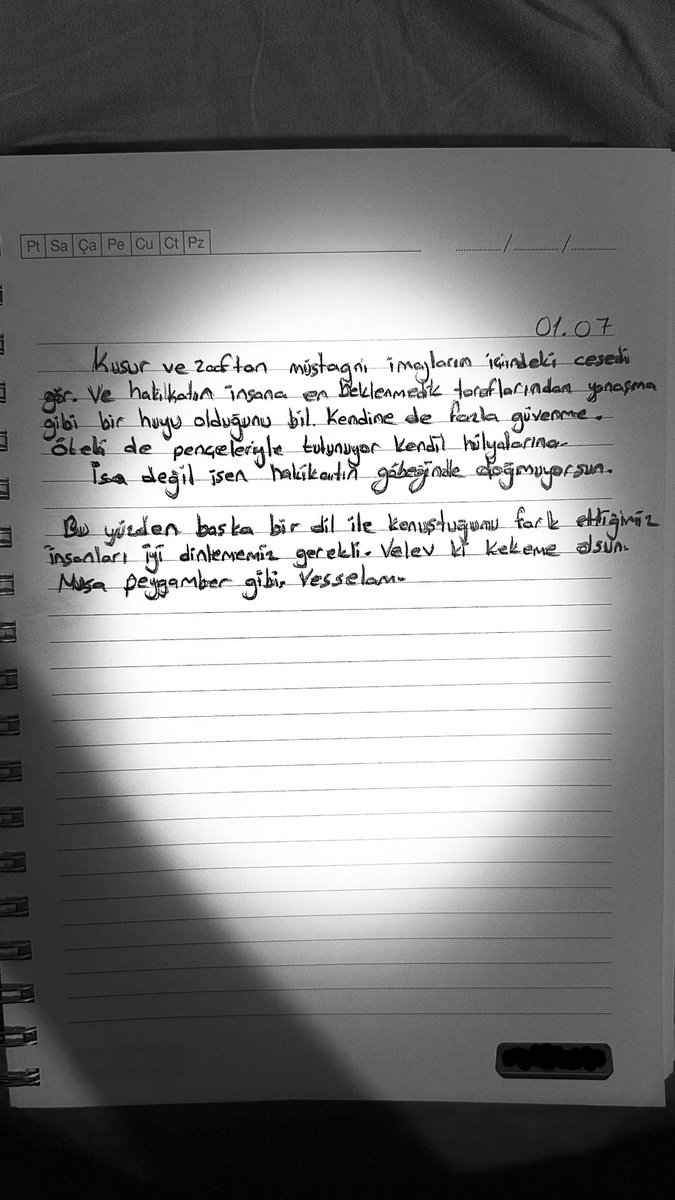 Pt Sa Ça Pe Cu Ct Pz
01.07
Kusur ve zaaftan müstağni imajların içindeki cesedi
gör. Ve hakikatın insana en beklenmedik taraflarından yanaşma
gibi bir huyu olduğunu bil. Kendine de fazla güvenme.
Öteki de pençeleriyle tutunuyor kendi hülyalarına.
İsa değil isen hakikatın göbeğinde doğmuyorsun.
Bu yüzden başka bir dil ile konuştuğunu fark ettiğimiz
insanları iyi dinlememiz gerekli. Velev ki kekeme olsun.
Musa peygamber gibi. Vesselam.